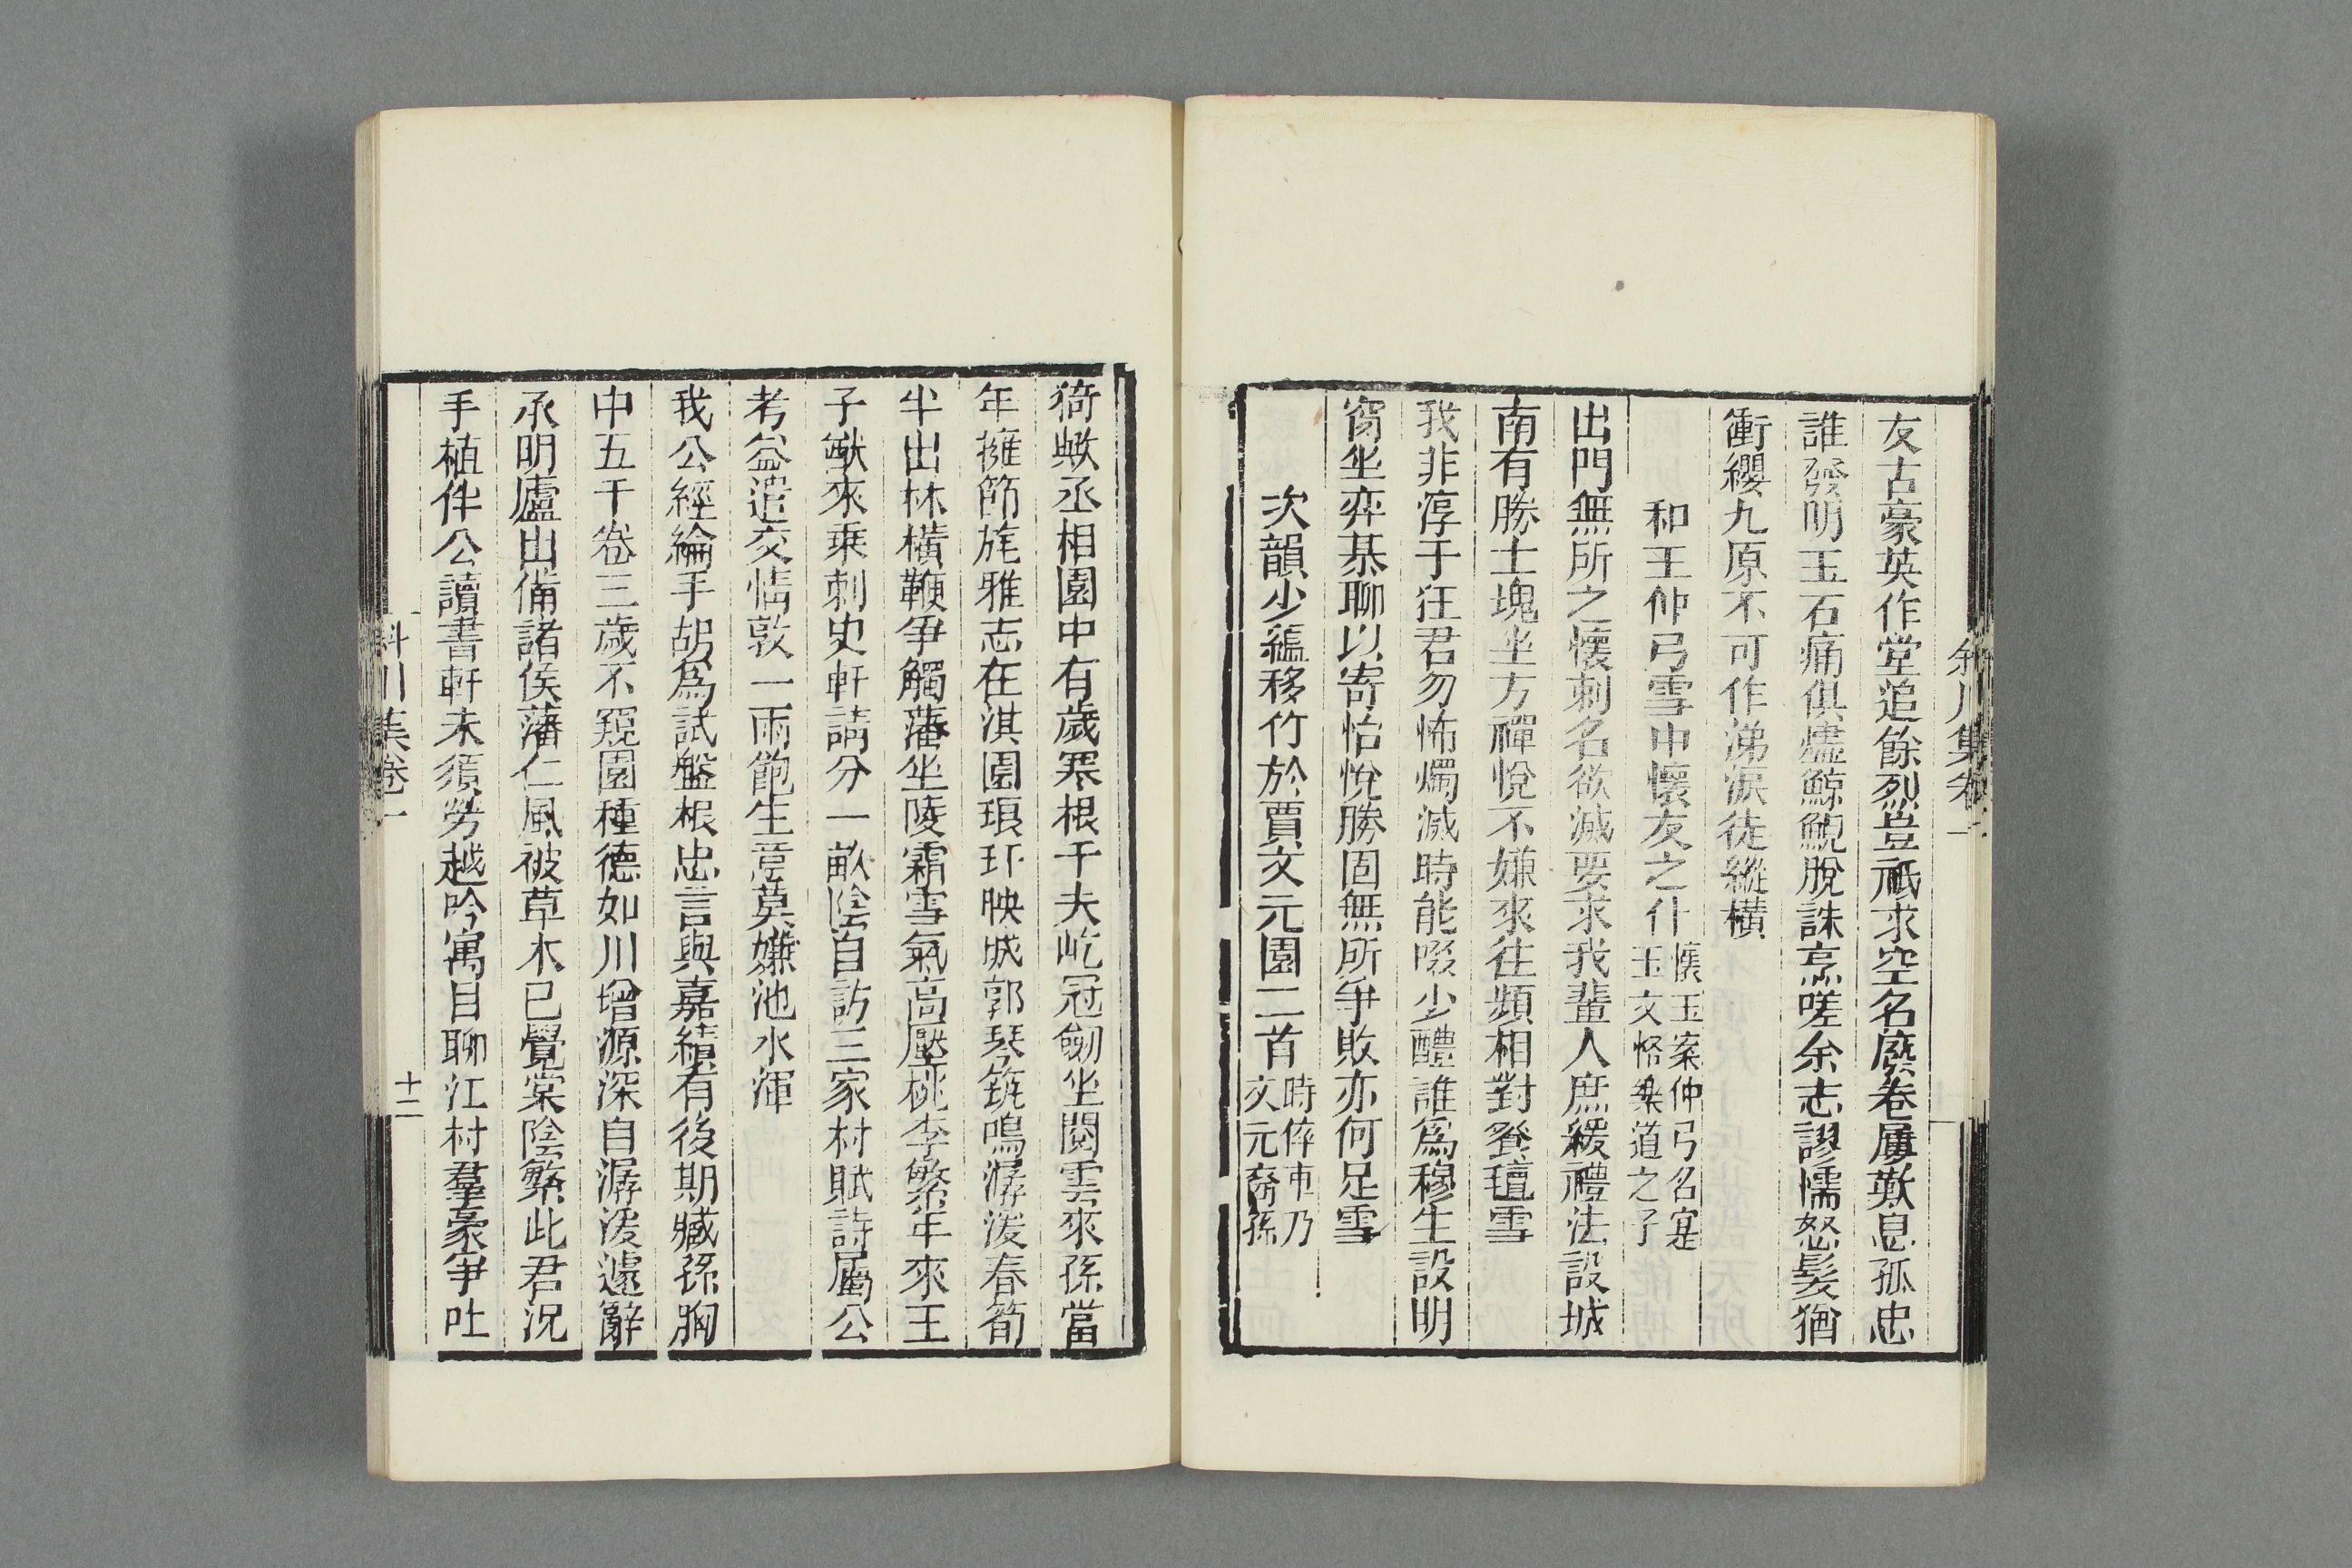 友古豪英作堂追餘烈豈祇求空名廢卷屢歎息孤忠
誰發明玉石痛俱燼鯨鯢脫誅烹嗟余志謬懦怒髮猶
衝纓九原不可作涕淚徒縱橫
和王仲弓雪中懷友之什
懷玉案仲弓名寔
玉文恪樂道之子
出門無所之懷刺名欲滅要求我輩人庶緩禮法設城
南有勝士塊坐方禪悅不嫌來往頻相對餐氊雪
我非淳于狂君勿怖燭滅時能啜少醴誰為穆生設明
窗坐弈棊聊以寄怡悅勝固無所爭敗亦何足雪
次韻少蘊移竹於賈文元園二首
時倅車乃
文元裔孫
猗歟丞相園中有歲寒根千夫屹冠劒坐閱雲來孫當
年擁節旄雅志在淇園琅玕映城郭琴筑鳴潺湲春筍
半出林橫鞭爭觸藩坐陵霜雪氣高壓桃李繁年來王
子猷來乘刺史軒請分一畝陰自訪三家村賦詩屬公
考益遣交情敦一雨飽生意莫嫌池水渾
我公經綸手胡為試盤根忠言與嘉績有後期臧孫胸
中五千卷三歲不窺園種德如川增源深自潺湲遽辭
承明廬出備諸侯藩仁風被草木已覺棠陰繁此君況
手植伴公讀書軒未須勞越吟寓目聊江村羣豪爭吐
斜川集卷一
十二